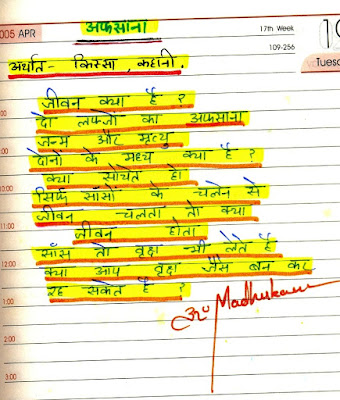 अफसाना
005 APR
17th Week
109-256
Tuesd
अर्थात- किस्सा, कहानी.
जीवन क्या है ?
दो लफ्जों का अफसाना
जन्म और मृत्यु
दोनों के मध्य क्या है ?
क्या सोचते हो
सिर्फ साँसों के चलने से
जीवन चलता तो क्या
जीवन होता
साँस तो वृक्ष भी लेते हैं
क्या आप वृक्ष जैसे बन कर
रह सकते हैं ?
Madhukar
9:00
10:00
11:00
12:00
1:00
2:00
3:00